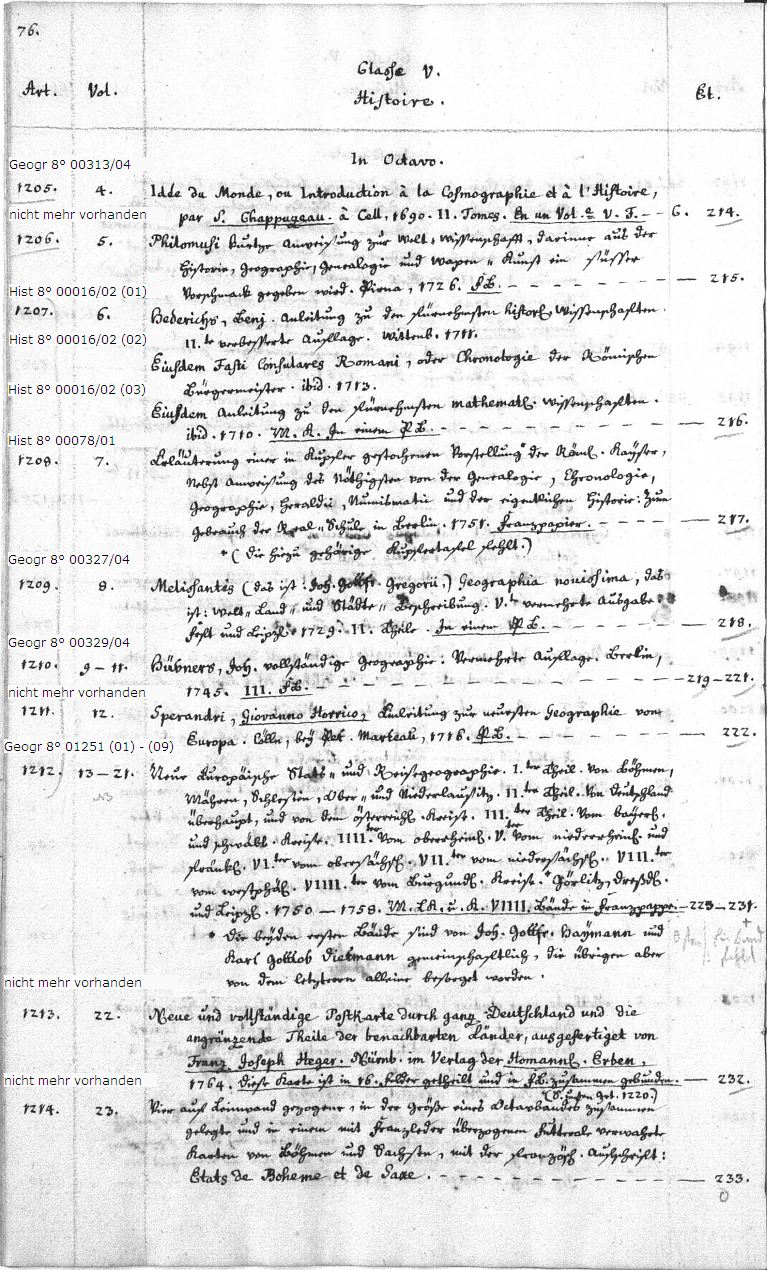 76.
Classe V.
Art. Vol. Histoire. Et.
In Octavo.
Geogr 8° 00313/04
1205. 4. Idée du Monde, ou Introduction à la Cosmographie et à l'Histoire,
nicht mehr vorhanden par S. Chappuzeau. à Cell, 1690. II. Tomes. En un Vol. v. F. – – G. 214.
1206. 5. Philomusi kurtze Anweisung zur Welt-Wissenschafft, darinne aus der
Historie, Geographie, Genealogie und Wapen-Kunst ein süsser
Vorschmack gegeben wird. Pirna, 1726. P.B. – – – – – – – 215.
Hist 8° 00016/02 (01)
1207. 6. Hederichs, Benj. Anleitung zu den fürnehmsten histor. Wissenschaften.
Hist 8° 00016/02 (02) II.te verbesserte Auflage. Wittenb. 1711.
Eiusdem Fasti Consulares Romani, oder Chronologie der Römischen
Hist 8° 00016/02 (03) Bürgermeister. ibid. 1713.
Eiusdem Anleitung zu den fürnehmsten mathemath. Wissenschaften.
ibid. 1710. M. K. In einem P.B. – – – – – – – 216.
Hist 8° 00078/01
1208. 7. Erläuterung einer in Kupfer gestochenen Vorstellung der Röm. Kayser,
Nebst Anweisung des Nöthigsten von der Genealogie, Chronologie,
Geographie, Heraldic, Numismatic und der eigentlichen Historie: Zum
Gebrauch der Real-Schule in Berlin. 1751. Franzpapier. – – – – 217.
* (Die hiezu gehörige Kupfertafel fehlt.)
Geogr 8° 00327/04
1209. 8. Melissantes (das ist: Joh. Gottfr. Gregorii.) Geographia nouissima, das
ist: Welt- Land- und Städte-Beschreibung. V.te vermehrte Ausgabe.
und Leipz. 1729. II. Theile. In einem P.B. – – – – – 218.
Geogr 8° 00329/04
1210. 9 – 11. Hübners, Joh. vollständige Geographie. Vermehrte Auflage. Berlin,
nicht mehr vorhanden 1745. III. P.B. – – – – – – – – – – – 219–221.
1211. 12. Sperandri, Giovanno Horrico, Einleitung zur neuesten Geographie von
Geogr 8° 01251 (01) - (09) Europa. Cölln, bey Pet. Marteau, 1716. P.B. – – – – – – 222.
1212. 13 – 21. Neue Europäische Stats- und Reisegeographie. I.ter Theil. von Böhmen,
Mähren, Schlesien, Ober- und Niederlausitz. II.ter Theil. Von Deutschland
überhaupt, und von dem österreich. Kreise. III.ter Theil. Vom bayer.
und schwäb. Kreise. IIII.ter Vom oberrhein. V.ter vom niederrhein. und
fränk. VI.ter vom obersächs. VII.ter vom niedersächs. VIII.ter
vom westphäl. VIIII.ter vom Burgund. Kreise. * Görlitz, Dresd.
und Leipz. 1750 – 1758. M. LK. u. K. VIIII. Bände in Franzpappe. – 223–231.
* Die beyden ersten Bände sind von Joh. Gottfr. Haymann und
Karl Gottlob Dietmann gemeinschaftlich, die übrigen aber
nicht mehr vorhanden von dem letzteren alleine besorget worden.
1213. 22. Neue und vollständige Postkarte durch ganz Deutschland und die
angränzende Theile der benachbarten Länder, ausgefertiget von
Franz Joseph Heger. Nürnb. im Verlag der Homann. Erben,
nicht mehr vorhanden 1764. Diese Karte ist in 16. Felder getheilt und in P.B. zusammen gebunden. – 232.
1220.)
1214. 23. Vier auf Leinwand gezogene, in der Größe eines Octavbandes zusammen
gelegte und in einem mit Franzleder überzogenen Futterale verwahrte
Karten von Böhmen und Sachsen, mit der französ. Aufschrift:
Etats de Boheme et de Saxe. – – – – – – – – – 233.